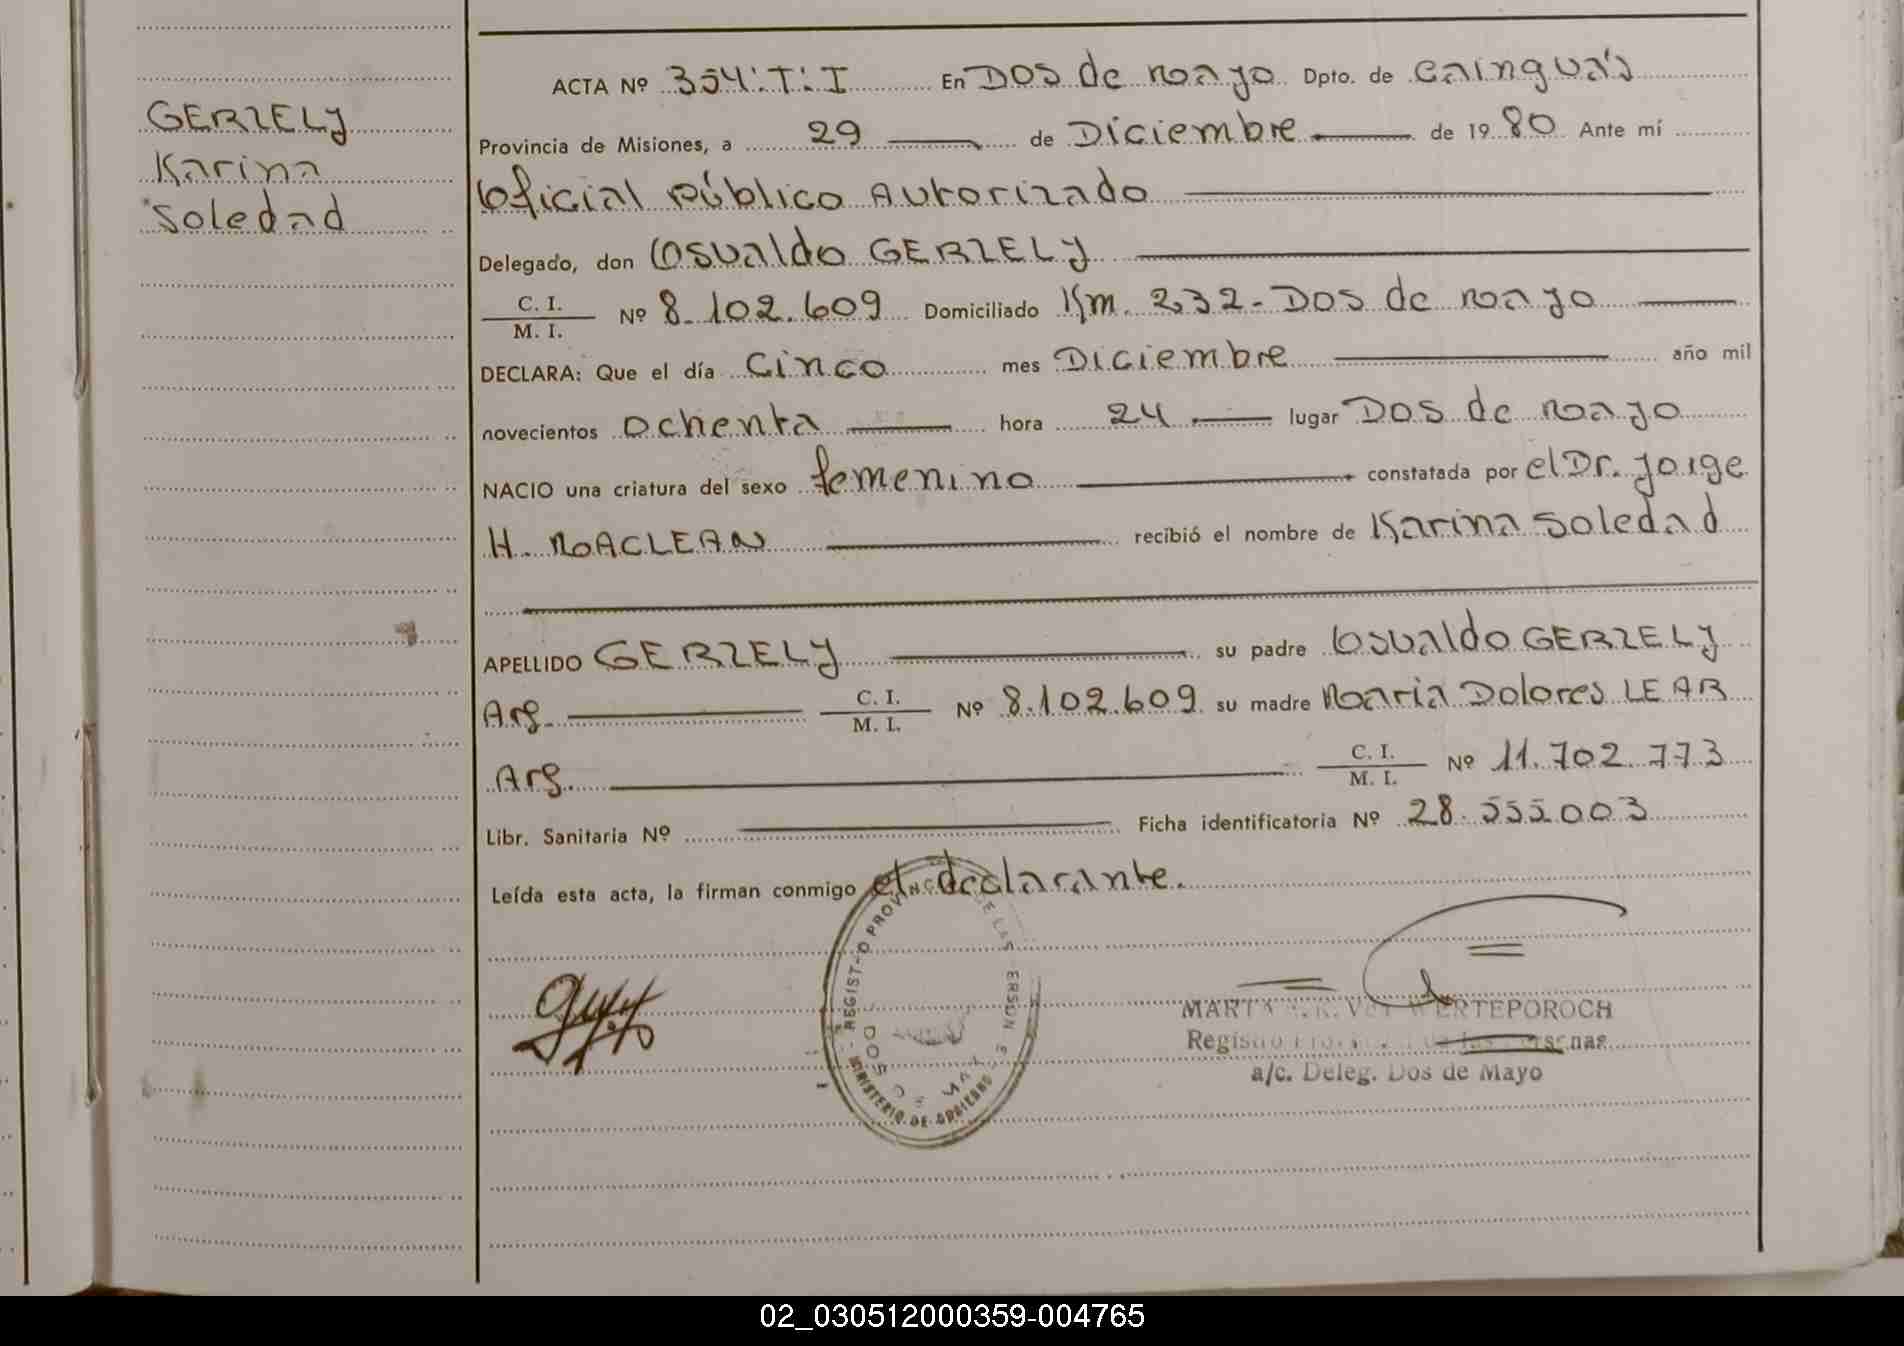 GERZELY
Karina
Soledad
ACTA Nº 354:T:I En Dos de Mayo Dpto. de Cainguás
Provincia de Misiones, a 29 de Diciembre de 1980 Ante mí
Oficial Público Autorizado
Delegado, don Osvaldo GERZELY
C. I.
M. I. Nº 8.102.609 Domiciliado Km. 232-Dos de Mayo
DECLARA: Que el día Cinco mes Diciembre año mil
novecientos Ochenta hora 24 lugar Dos de Mayo
NACIO una criatura del sexo femenino constatada por el Dr. Jorge
H. MACLEAN recibió el nombre de Karina Soledad
APELLIDO GERZELY su padre Osvaldo GERZELY
Arg. C. I. M. I. Nº 8.102.609 su madre Maria Dolores LEAR
Arg. C. I. M. I. Nº 11.702.773
Libr. Sanitaria Nº Ficha identificatoria Nº 28.555.003
Leída esta acta, la firman conmigo el declarante.
MINISTERIO DE GOBIERNO
DOS DE MAYO
MARTA WERTEPOROCH
a/c. Deleg. Dos de Mayo
02_030512000359-004765